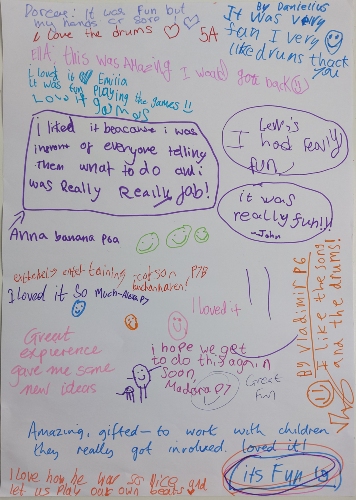 Dorcas: It was fun but
my hands are sore!
I Love the drums
5A
By Danielius
It was very
fun I very
like druns thack
you
Ella: this was Amazing I woald gove back
I loved it Emilia
It was fun playing the games!!
Low it games
i liked it beacause i was
infront of everyone telling
them what to do and i
was Really Really fab!
Lewis
I had really
fun
it was
really fun!!
-John
Anna banana P6a
P7B
I loved it So Much-Alexa P7
I loved it
!!
Great
expierence
gave me some
new ideas
i hope we get
to do this again
Soon
Madara P7
Great
fun
By Vladimir P6
I like the song
and the drums!
Amazing, gifted - to work with children
they really got involved. loved it!
I love how he war so nice and
let us play our own beats
its Fun